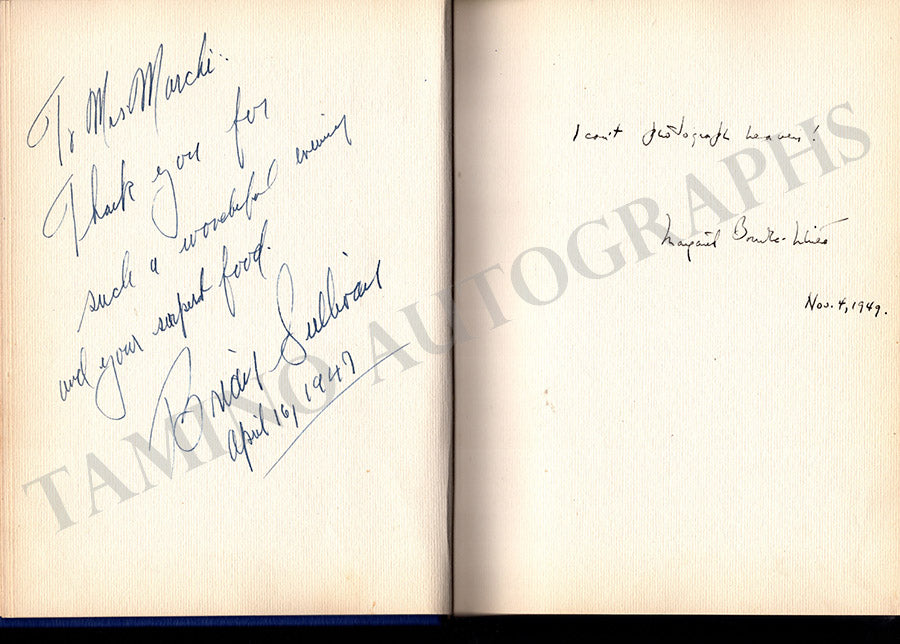 To Mrs. Marchi:
Thank you for
such a wonderful evening
and your superb food.
Brian Sullivan
April 16, 1947
I can't photograph heaven!
Margaret Bourke-White
Nov. 4, 1949.
TAMINO AUTOGRAPHS